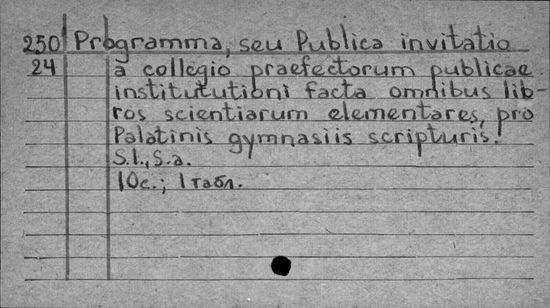 250 Programma, seu Publica invitatio
24 a collegio praefectorum publicae
institututioni facta omnibus lib-
ros scientiarum elementares, pro
Palatinis gymnasiis scripturis.
S.l., S.a.
10с.; 1 табл.